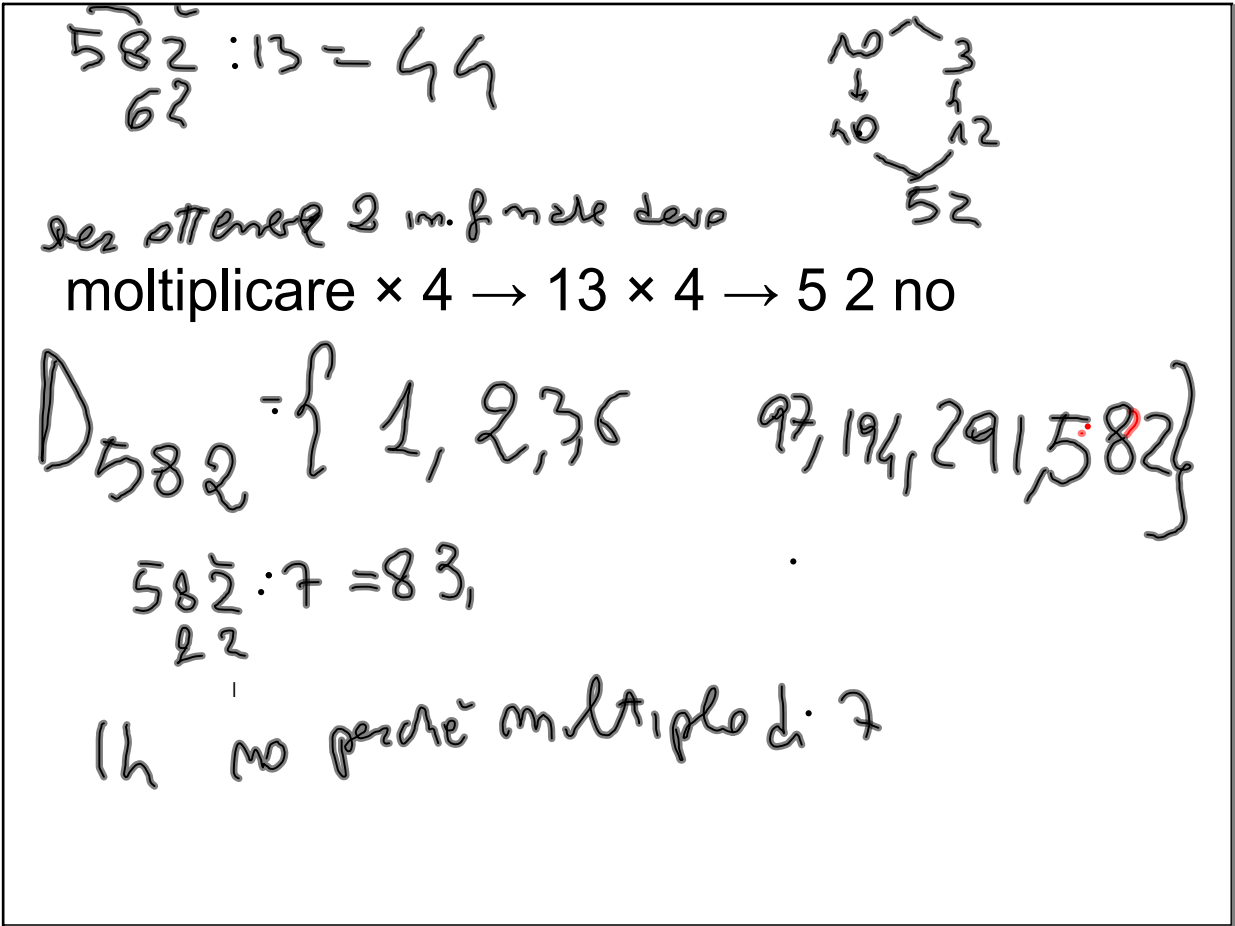 582 :13 = 44
62
10 3
↓ ↓
40 12
52
per ottenere 2 in finale devo
moltiplicare × 4 → 13 × 4 → 5 2 no
D582 = { 1, 2,3,6 97, 194, 291, 582}
582 : 7 = 83,
22
1
14 no perchè multiplo di 7